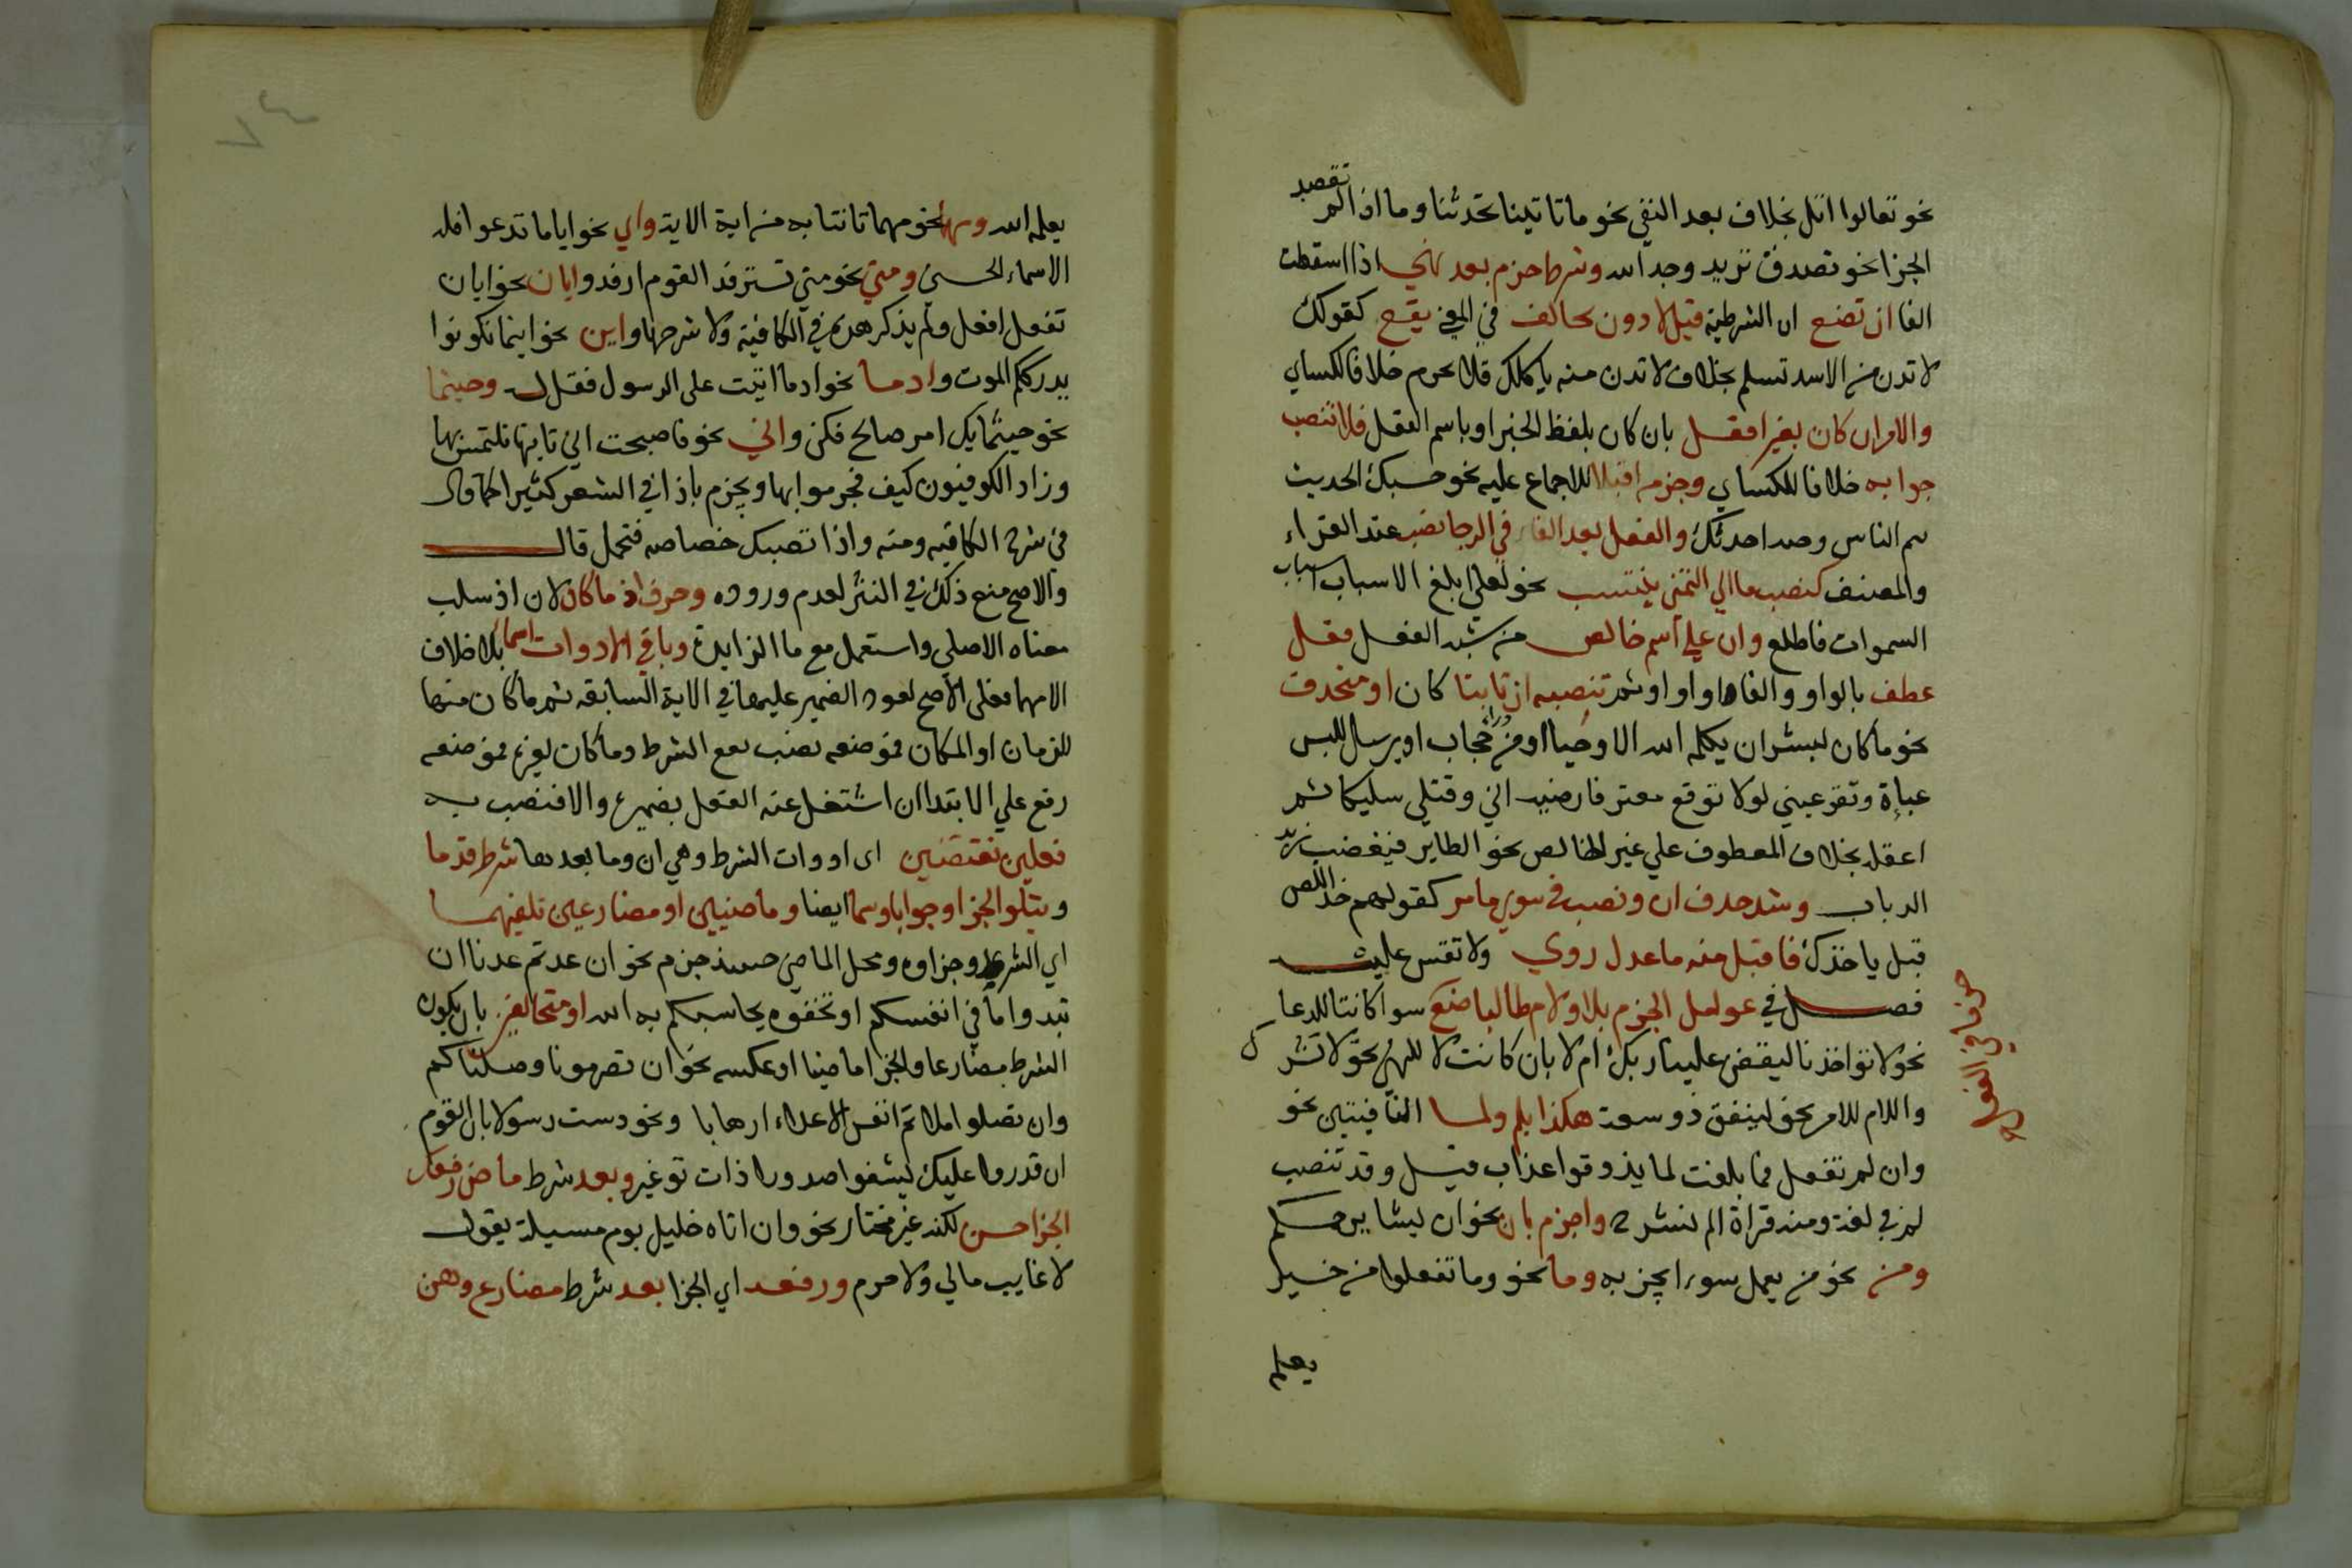 نحو تعالوا اتل بخلاف بعد النفي نحو ما تاتينا تحدثنا وما اذا لم تقصد
الجزا نحو تصدق تريد وجه الله وشرط جزم بعد نهي اذا اسقطت
الفا ان تضع ان الشرطية قبل لا دون تخالف في المعني يقع كقولك
لا تدن من الاسد تسلم بخلاف لا تدن منه ياكلك فلا يجزم خلافا للكساي
والامر ان كان بغير افعل بان كان بلفظ الخبر او باسم الفعل فلا تنصب
جوابه خلافا للكساي وجزمه اقبلا للاجماع عليه نحو حسبك الحديث
ينم الناس وصه احدثك والفعل بعد الفاء في الرجا نصب عند الفراء
والمصنف كنصب ما الي التمني ينتسب نحو لعلي ابلغ الاسباب اسباب
السموات فاطلع وان علي اسم خالص من شبه الفعل فعل
عطف بالواو والفاء او او او ثم تنصبه ان ثابتا كان او منحذف
نحو ما كان لبشر ان يكلمه الله الا وحيا او من وراء حجاب او يرسل للبس
عباة وتقر عيني لولا توقع معتر فارضيه اني وقتلي سليكا ثم
اعقله بخلاف المعطوف علي غير الخالص نحو الطاير فيغضب زيد
الذباب وشذ حذف ان ونصب في سوي ما مر كقولهم خذ اللص
قبل ياخذك فاقبل منه ما عدل روي ولا تقس عليه
فصل في عوامل الجزم بلا ولام طالبا ضع سوا كانتا للدعا
نحو لا تواخذنا ليقض علينا ربك ام لا بان كانت لا للنهي نحو لا تشرك
واللام للامر نحو لينفق ذو سعة هكذا بلم ولما النافيتين نحو
وان لم تفعل فما بلغت لما يذوقوا عذاب قيل وقد تنصب
لم في لغة ومنه قراة الم نشرح واجزم بان نحو ان يشا يرحمكم
ومن نحو من يعمل سوءا يجز به وما نحو وما تفعلوا من خير
يعلمه
يعلمه الله ومهما نحو مهما تاتنا به من اية الاية واي نحو ايا ما تدعوا فله
الاسماء الحسني ومتي نحو متي تسترفد القوم ارفد وايان نحو ايان
تفعل افعل ولم يذكر هذه في الكافية ولا شرحها واين نحو اينما تكونوا
يدرككم الموت واذ ما نحو اذ ما اتيت علي الرسول فقل له وحيثما
نحو حيثما يك امر صالح فكن واني نحو فاصبحت اني تاتها تلتمس بها
وزاد الكوفيون كيف فجزموا بها ويجزم باذا في الشعر كثيرا كما قال
في شرح الكافيه ومنه واذا تصبك خصاصه فتحمل قال
والاصح منع ذلك في النثر لعدم وروده وحرف اذ ما كان لان اذ سلب
معناه الاصلي واستعمل مع ما الزايدة وباقي الادوات اسما بلا خلاف
الا مهما فعلي الاصح لعود الضمير عليها في الاية السابقه ثم ما كان منها
للزمان او المكان فموضعه نصب بفعل الشرط وما كان لغيره فموضعه
رفع علي الابتدا ان اشتغل عنه الفعل بضميره والا فنصب به
فعلين يقتضين اي ادوات الشرط وهي ان وما بعدها شرط قدما
ويتلو الجزا وجوابا وسما ايضا وماضيين او مضارعين تلفيهما
اي الشرط وجزاوه ومحل الماضي حينئذ جزم نحو ان عدتم عدنا ان
تبدوا ما في انفسكم او تخفوه يحاسبكم به الله او متخالفين بان يكون
الشرط مضارعا والجزا ماضيا او عكسه نحو ان تصرمونا وصلناكم
وان تصلوا املاتم انفس الاعداء ارهابا ونحو دست رسولا بان القوم
ان قدروا عليك يشفوا صدورا ذات توغير وبعد شرط ماض رفعك
الجزا حسن لكنه غير مختار نحو وان اتاه خليل يوم مسيلة يقول
لا غايب مالي ولا حرم ورفعه اي الجزا بعد شرط مضارع وهن